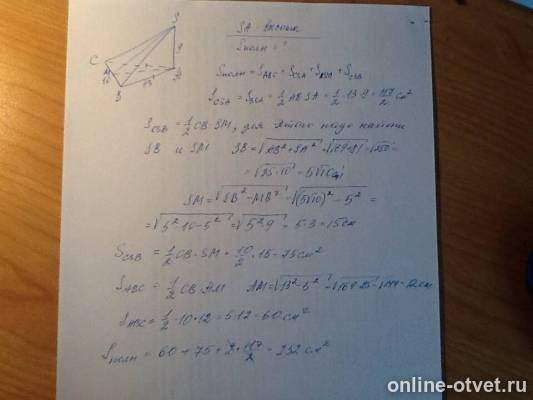 SA высота
Sполн = ?
S
C
9
A
10
M
13
B
Sполн = S_ABC + S_CSA + S_ASB + S_CSB
S_CSA = S_BSA = 1/2 AB · SA = 1/2 · 13 · 9 = 117/2 см²
S_CSB = 1/2 CB · SM, для этого надо найти
SB и SM SB = √(AB² + SA²) = √(169+81) = √250 =
= √(25·10) = 5√10 см
SM = √(SB² − MB²) = √((5√10)² − 5²) =
= √(5²·10 − 5²) = √(5²·9) = 5·3 = 15 см
S_CSB = 1/2 CB · SM = 10/2 · 15 = 75 см²
S_ABC = 1/2 CB · AM AM = √(13² − 5²) = √(169−25) = √144 = 12 см
S_ABC = 1/2 · 10 · 12 = 5 · 12 = 60 см²
Sполн = 60 + 75 + 2 · 117/2 = 252 см²
online-otvet.ru